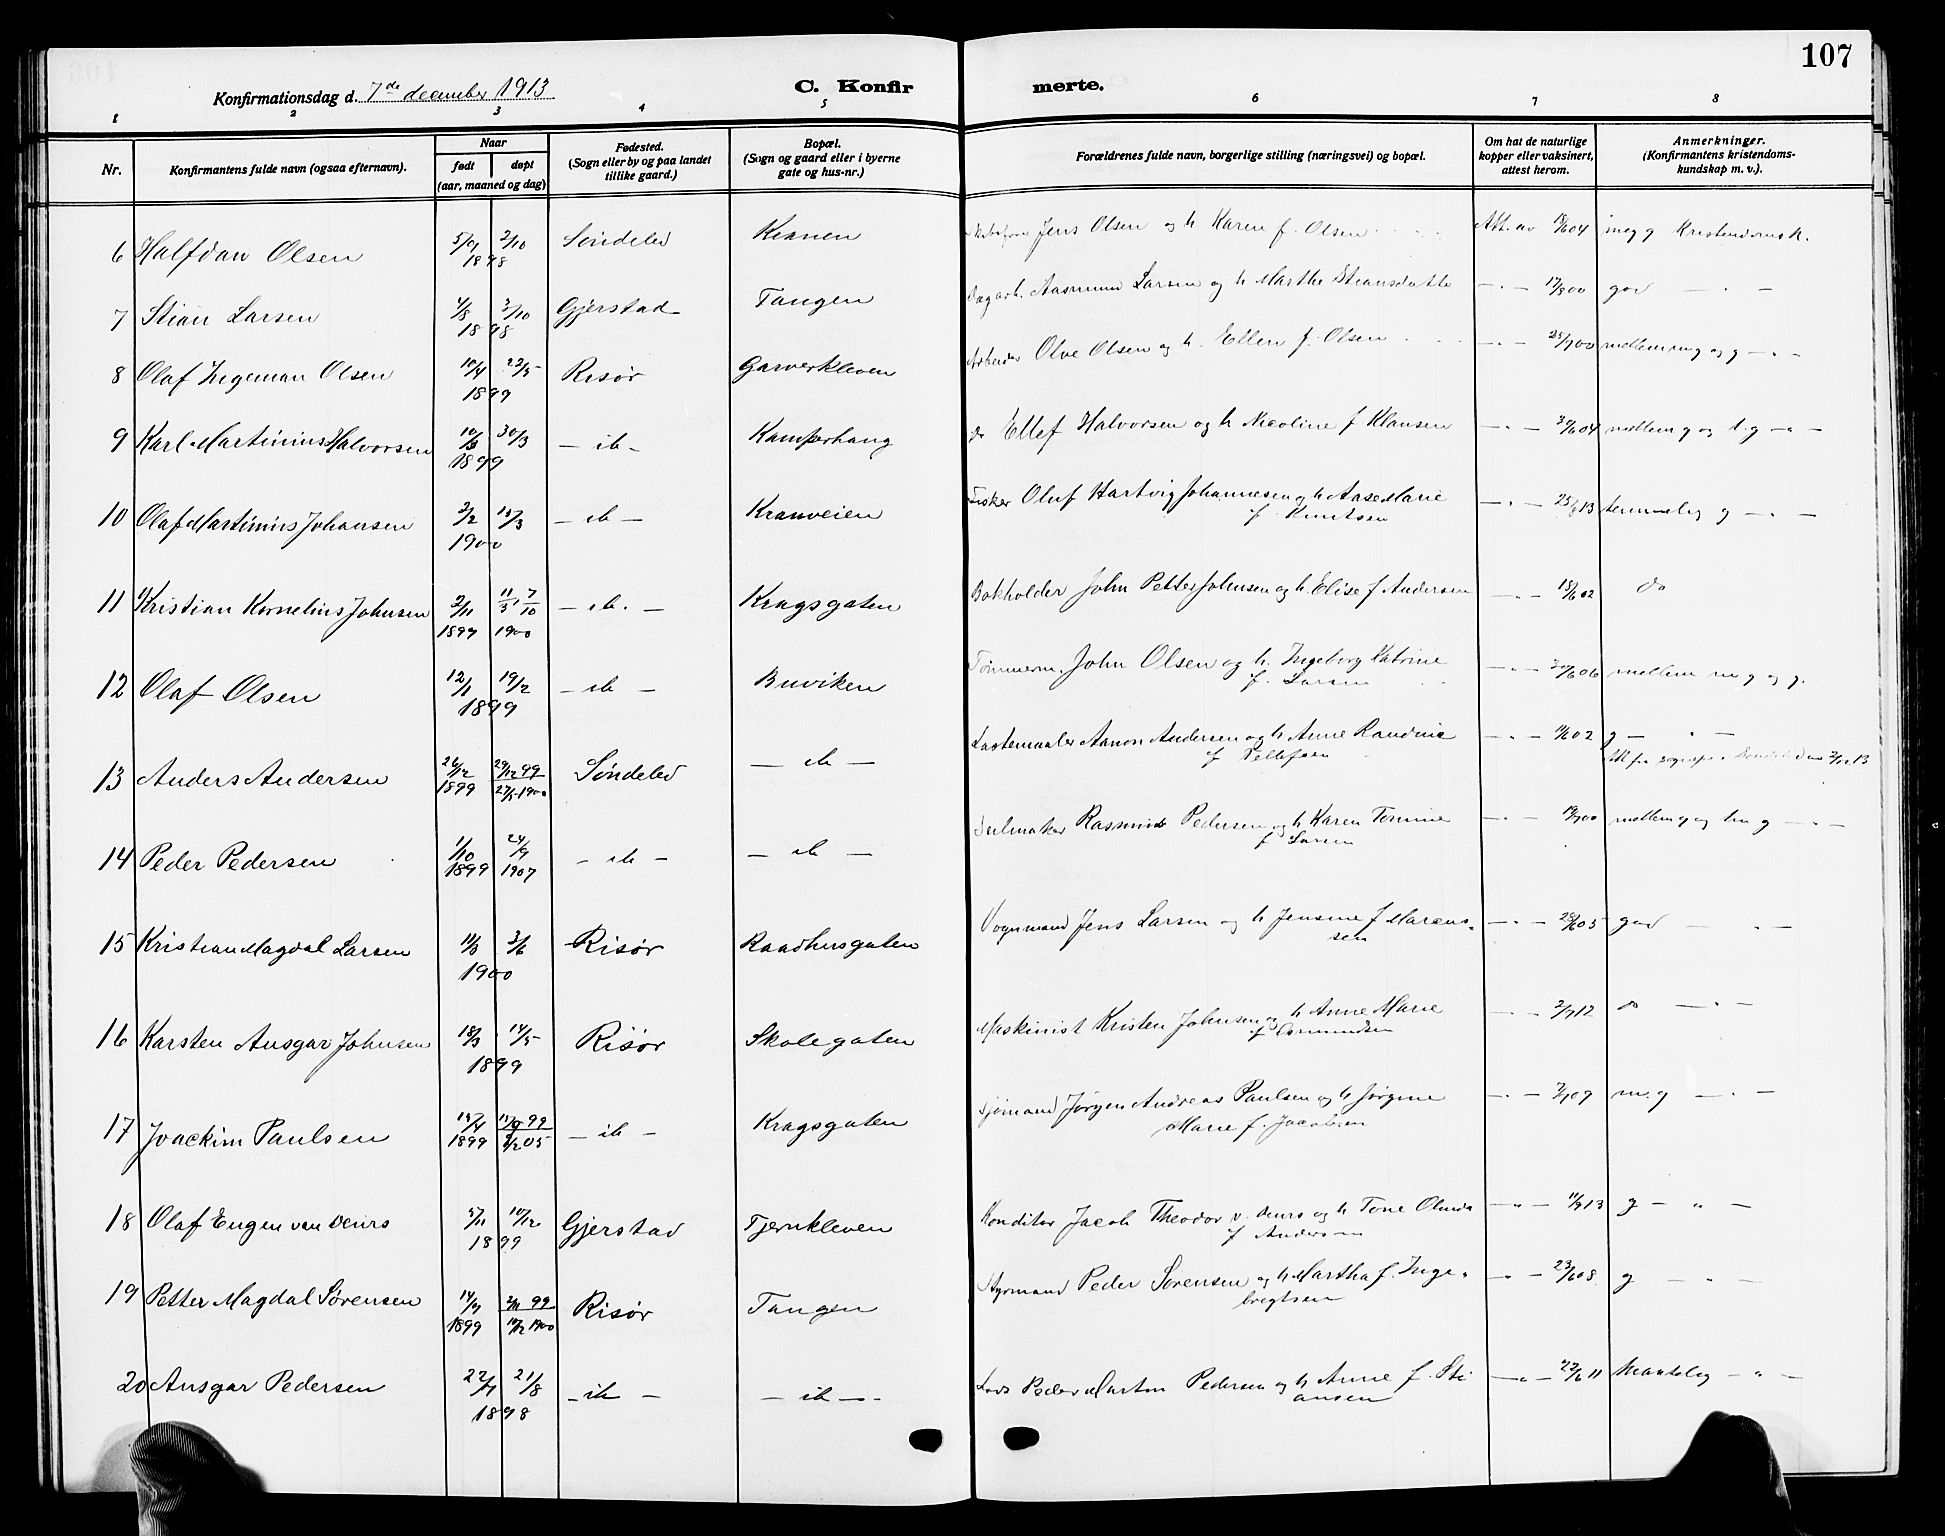 107
Konfirmationsdag d. 7de december 1913
C. Konfir merte.
1 2 3 4 5 6 7 8
Nr.
Konfirmantens fulde navn (ogsaa efternavn).
Naar
født døpt
(aar, maaned og dag)
Fødested.
(Sogn eller by og paa landet
tillike gaard.)
Bopæl.
(Sogn og gaard eller i byerne
gate og hus-nr.)
Forældrenes fulde navn, borgerlige stilling (næringsvei) og bopæl.
Om hat de naturlige
kopper eller vaksinert,
attest herom.
Anmerkninger.
(Konfirmantens kristendoms-
kundskap m. v.).
6 Halfdan Olsen 2/10 1898 Søndeled Kranen Jens Olsen og h Karen f. Olsen Att. av meg g Kristendomsk.
7 Stian Larsen 4/8 2/10 1898 Gjerstad Tangen Dagarb. Aasmund Larsen og h Marthe Stiansdatter — " — god — " —
8 Olaf Ingeman Olsen 10/4 22/5 1899 Risør Garverkleven Arbeider Olve Olsen og h. Ellen f. Olsen — " — mellem m g og g — " —
9 Karl Martinius Halvorsen 10/3 30/3 1899 — ib — Kamperhaug do Ellef Halvorsen og h Nicoline f Klausen — " — mellem g og t. g — " —
10 Olaf Martinius Johansen 2/2 15/3 1900 — ib — Kranveien Fisker Oluf Hartvig Johannesen og h Aase Marie
f. Knutsen — " — temmelig g — " —
11 Kristian Kornelius Johnsen 2/11 1899 11/3 7/10 1900 — ib. — Kragsgaten Bokholder John Petter Johnsen og h Elise f Andersen — " — 18/6 02 do
12 Olaf Olsen 12/1 19/2 1899 — ib — Buviken Tømmerm. John Olsen og h. Ingeborg Katrine
f. Larsen — " — mellem m g og g.
13 Anders Andersen 26/12 1899 29/12 99 27/5 1900 Søndeled — ib — Lastemaaler Aanon Andersen og h Anne Randine
f Tellefsen — " — g — " —
14 Peder Pedersen 1/10 1899 24/9 1907 — ib — — ib — Seilmaker Rasmus Pedersen og h Karen Tomine
f Larsen — " — mellem g og tem g — " —
15 Kristian Magdal Larsen 11/3 3/6 1900 Risør Raadhusgaten Vognmand Jens Larsen og h Jensine f Marcus-
sen — " — god — " —
16 Karsten Ansgar Johnsen 18/3 14/5 1899 Risør Skolegaten Maskinist Kristen Johnsen og h Anne Marie
f Osmundsen — " — do — " —
17 Joachim Paulsen 1899 — ib — Kragsgaten Sjømand Jørgen Andreas Paulsen og h Jørgine
Marie f. Jacobsen — " — m. g — " —
18 Olaf Eugen van Deurs 5/11 10/12 1899 Gjerstad Tjernkleven Konditor Jacob Theodor v. Deurs og h Tone Olinda
f Andersen — " — 11/9 13 g — " —
19 Petter Magdal Sørensen 14/9 1899 2/11 99 Risør Tangen Styrmand Peder Sørensen og h Martha f. Inge-
bregtsen — " — 23/6 08 g — " —
20 Ansgar Pedersen 21/8 1898 — ib — — ib — Lods Peder Marton Pedersen og h Anne f. Sti
ansen — " — Maadelig — " —